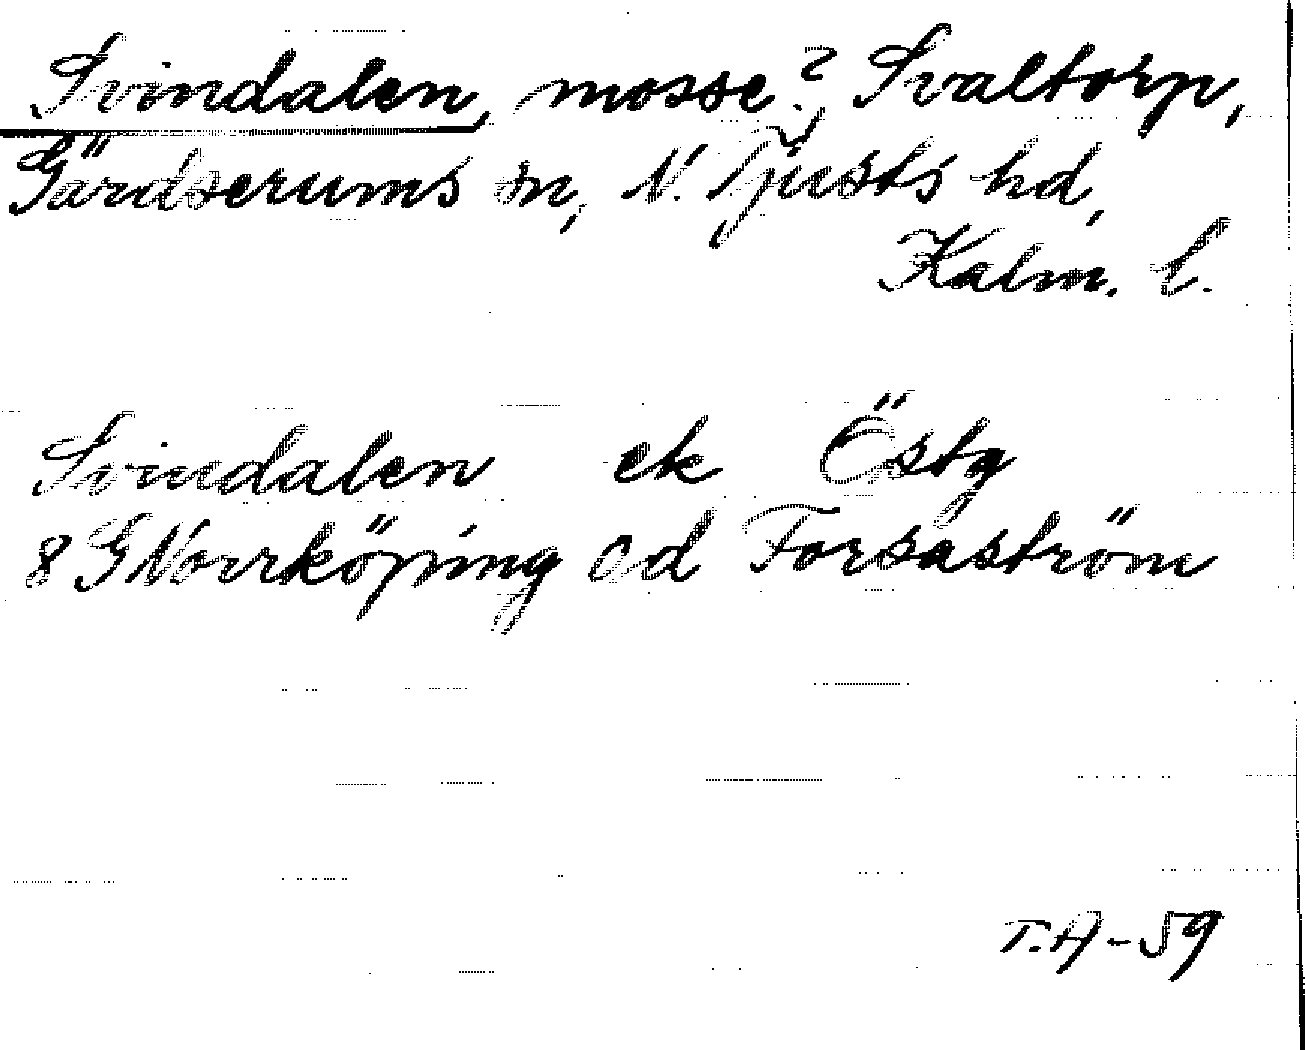 Svindalen, mosse? Svaltorp,
Gärdserums sn, N. Tjusts hd,
Kalm. l.
Svindalen ek Östg
8 G Norrköping od Forsaström
T.A-59